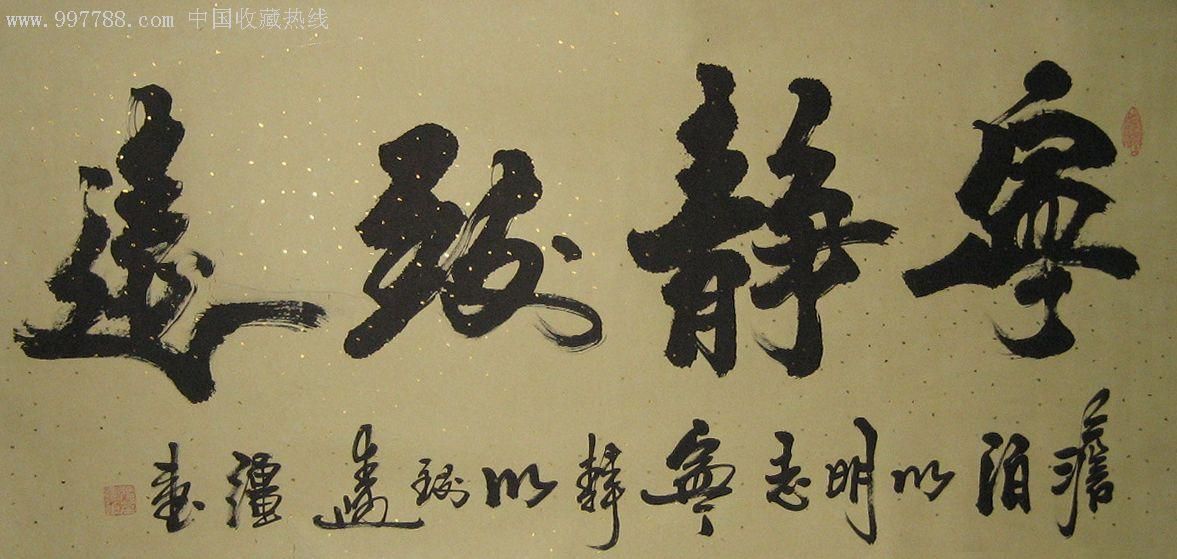 www.997788.com 中国收藏热线
寧靜致遠
澹泊以明志寧静以致遠 書